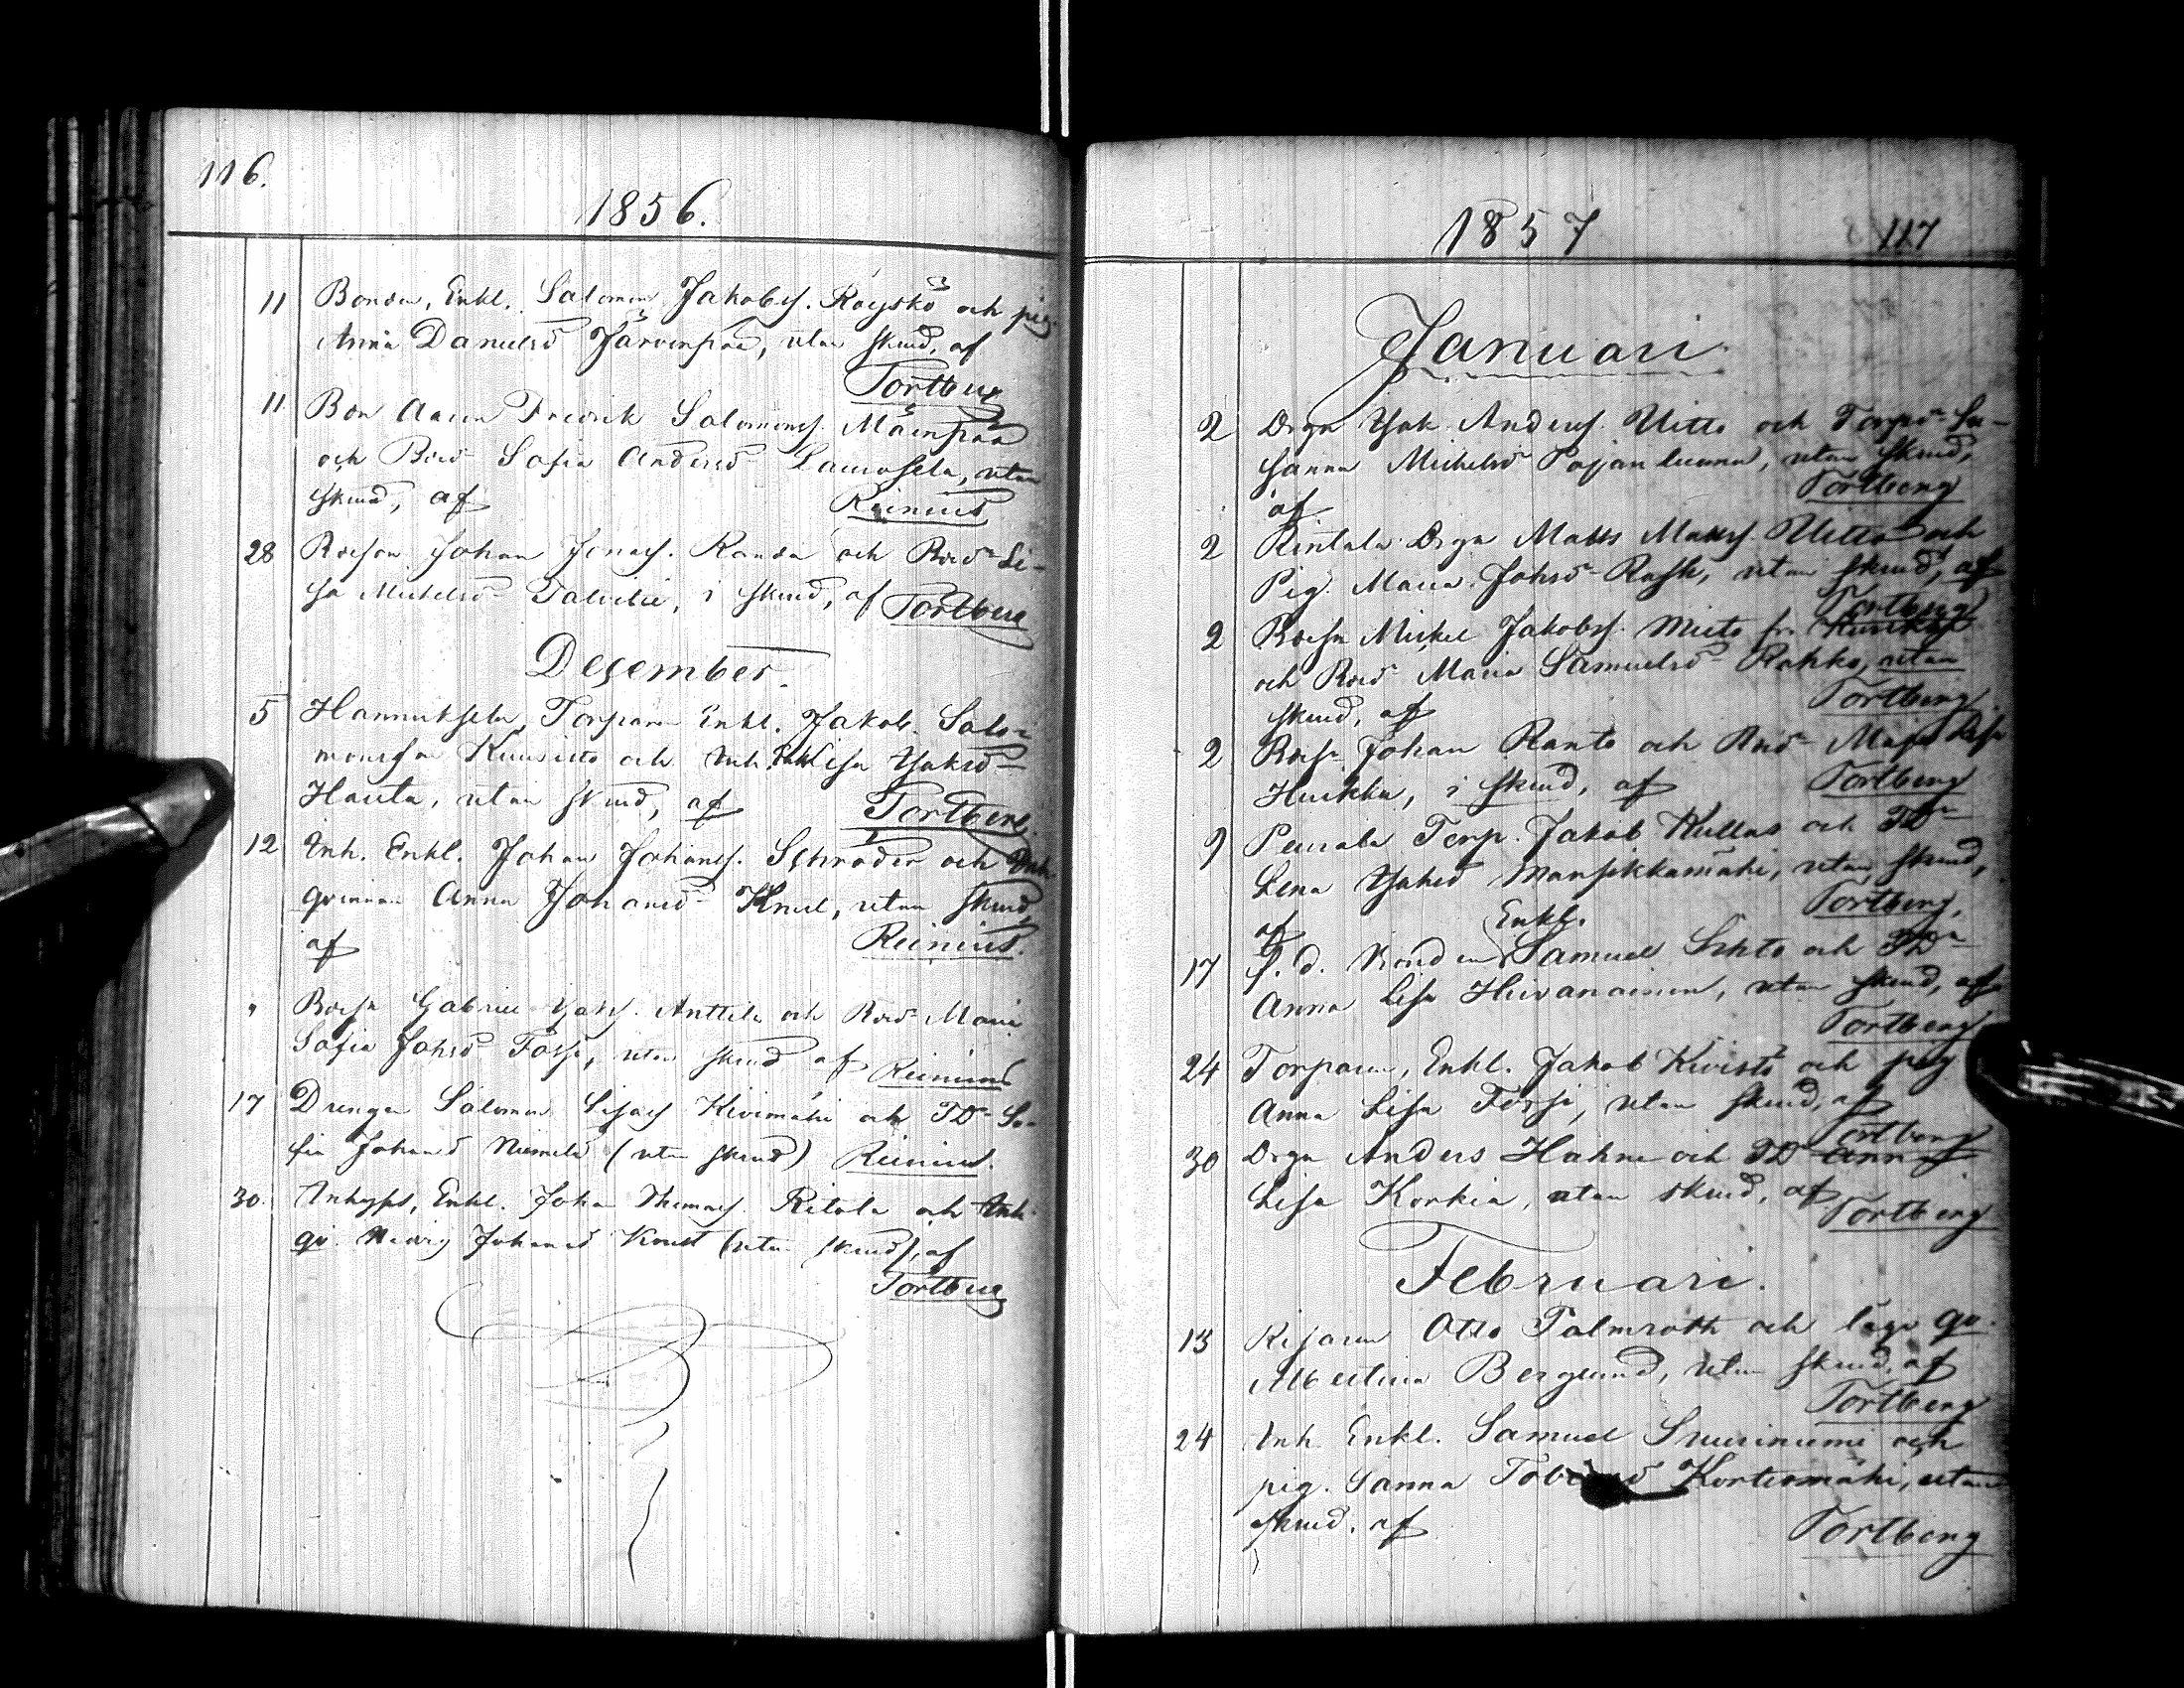 116.
1856.
11 Bonden, Enkl. Salomon Jakobss. Röyskö och pig.
Anna Danielsd Järvenpää, utan skud, af
Tortberg
11 Bon Aaron Fredrik Salomonss. Mäenpää
och Bond Sofia Andersd Laurosela, utan
skud, af Reinius
28 Bondson Johan Jonass. Randa och Bond Li-
sa Michelsd Talvitie, i skud, af Tortberg
December.
5 Hannuksela Torparen Enkl. Jakob Salo-
monsson Kuusisto och Inh. Enk Lisa Isaksd
Hauta, utan skud, af Tortberg
12 Inh. Enkl. Johan Johanss. Schroder och Inh.
qvinnan Anna Johansd Knul, utan skud
af Reinius.
" Bonds Gabriel Isakss. Anttila och Bond Maria
Sofia Johsd Forss, utan skud af Reinius
17 Drengen Salomon Kivimäki och TDr So-
fia Johansd Niemelä (utan skud) Reinius.
30. Inhyses, Enkl. Johan Thomass. Ritola och Inh.
qv. Hedvig Johansd Knut (utan skud), af
Tortberg
1857 117
Januari
2 Drgn Isak Anderss. Uitto och Torpdr Su-
sanna Michelsd Pajanluoma, utan skud,
af Tortberg
2 Rintala Drgn Matts Mattss. Uitto och
Pig. Maria Johsd Rask, utan skud, af
Tortberg
2 Bondsn Mickel Jakobss. Mieto fr. Kurikka
och Bond Maria Samuelsd Rahko, utan
skud, af Tortberg
2 Bonds Johan Ranto och Bond Maja Lisa
Huikku, i skud, af Tortberg
9 Peurala Torp. Jakob Kullas och TDr
Lena Isaksd Mansikkamäki, utan skud,
af Tortberg,
Enkl.
17 f. d. Bonden Samuel Lehto och TDr
Anna Lisa Huvanainen, utan skud, af
Tortberg
24 Torparen, Enkl. Jakob Kivistö och pig
Anna Lisa Forsse, utan skud, af
Tortberg
30 Drgn Anders Hahne och TD Ann
Lisa Korkia, utan skud, af
Tortberg
Februari.
13 Otto Palmroth och lägo qv.
Albertina Berglund, utan skud, af
Tortberg
24 Inh Enkl. Samuel Suuriniemi och
pig. Sanna Kortesmäki, utan
skud, af Tortberg